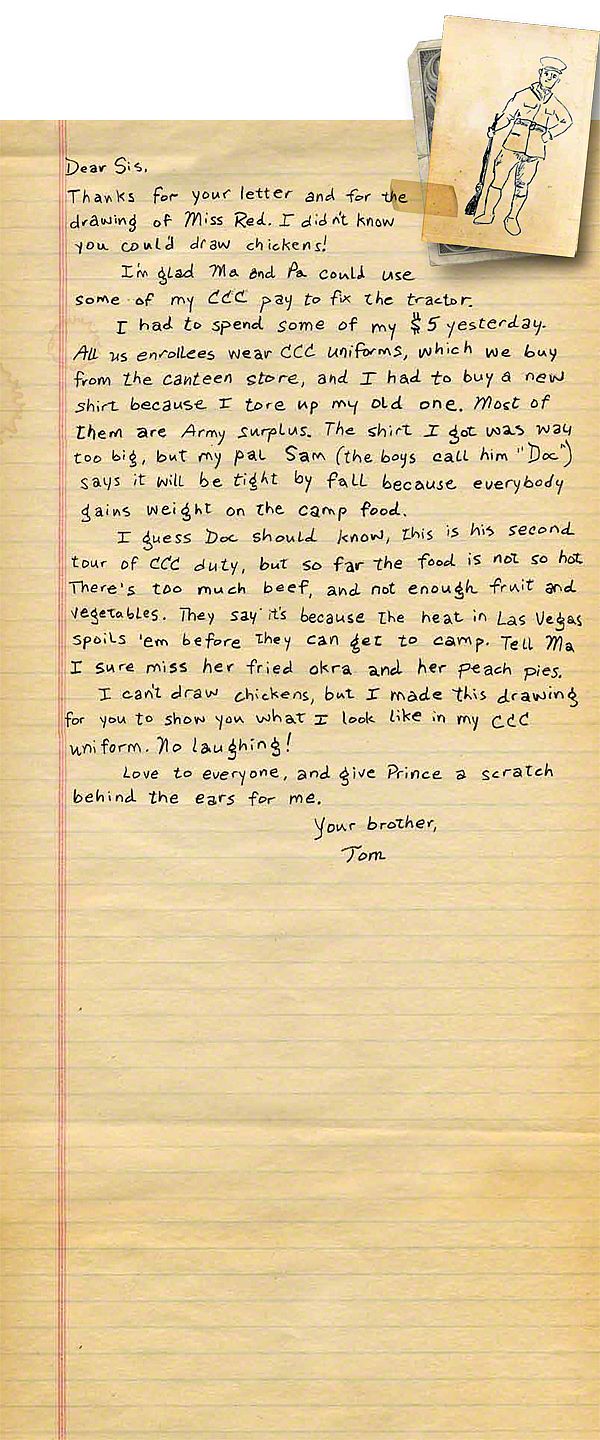 Dear Sis,
Thanks for your letter and for the
drawing of Miss Red. I didn't know
you could draw chickens!
I'm glad Ma and Pa could use
some of my CCC pay to fix the tractor.
I had to spend some of my $5 yesterday.
All us enrollees wear CCC uniforms, which we buy
from the canteen store, and I had to buy a new
shirt because I tore up my old one. Most of
them are Army surplus. The shirt I got was way
too big, but my pal Sam (the boys call him "Doc")
says it will be tight by fall because everybody
gains weight on the camp food.
I guess Doc should know, this is his second
tour of CCC duty, but so far the food is not so hot.
There's too much beef, and not enough fruit and
vegetables. They say it's because the heat in Las Vegas
spoils 'em before they can get to camp. Tell Ma
I sure miss her fried okra and her peach pies.
I can't draw chickens, but I made this drawing
for you to show you what I look like in my CCC
uniform. No laughing!
Love to everyone, and give Prince a scratch
behind the ears for me.
Your brother,
Tom